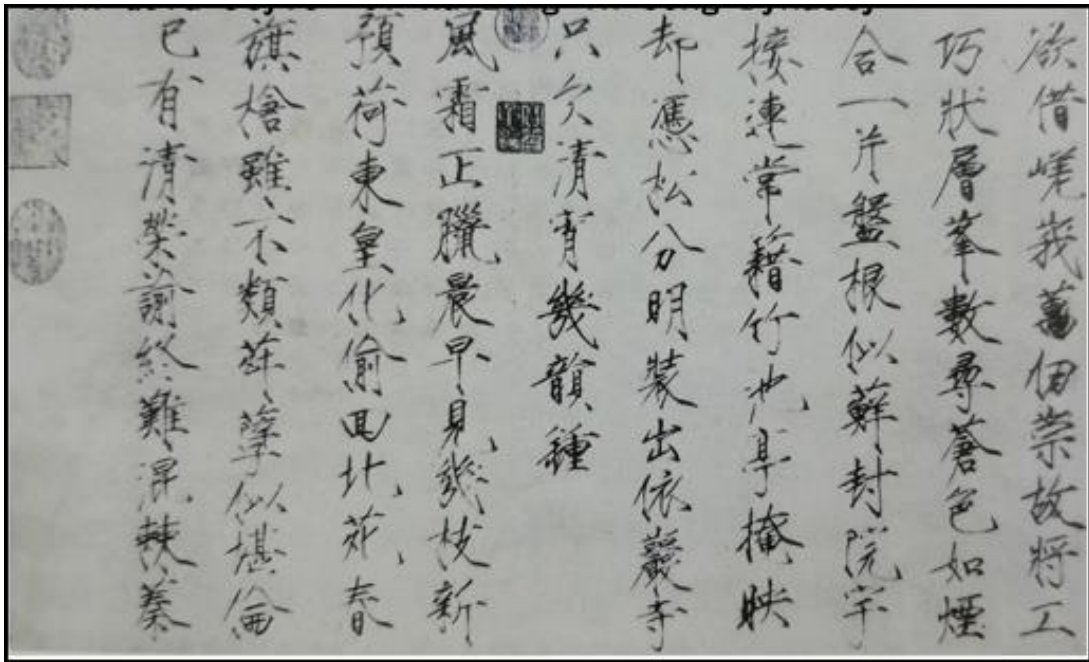 欲借嵯峩萬仞崇故將工
巧狀層峯數尋蒼色如煙
合一片盤根似蘚封院宇
接連常籍竹池亭掩映
却憑松分明裝出依巖寺
只欠清宵幾韻鍾
風霜正臘晨早見幾枝新
預荷東皇化偷回北苑春
旗槍雖不類荈孽似堪倫
已有清榮誚終難混棘蓁